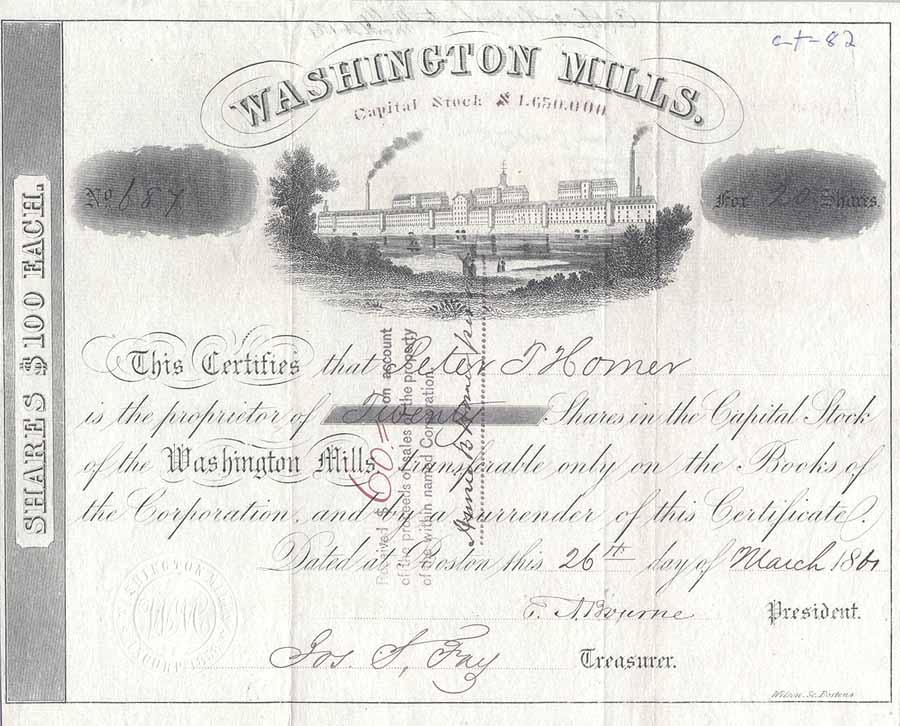 ct-82
WASHINGTON MILLS.
Capital Stock $1,650,000
No. 687
For 20 Shares.
SHARES $100 EACH.
This Certifies that Peter T Homer
is the proprietor of Twenty Shares in the Capital Stock
of the Washington Mills, transferable only on the Books of
the Corporation, and by a surrender of this Certificate.
Dated at Boston this 26th day of March 1861
Received $60= on account
of the proceeds of sales of the property
of the within named Corporation.
T. A. Bourne President.
Jos. S. Fay Treasurer.